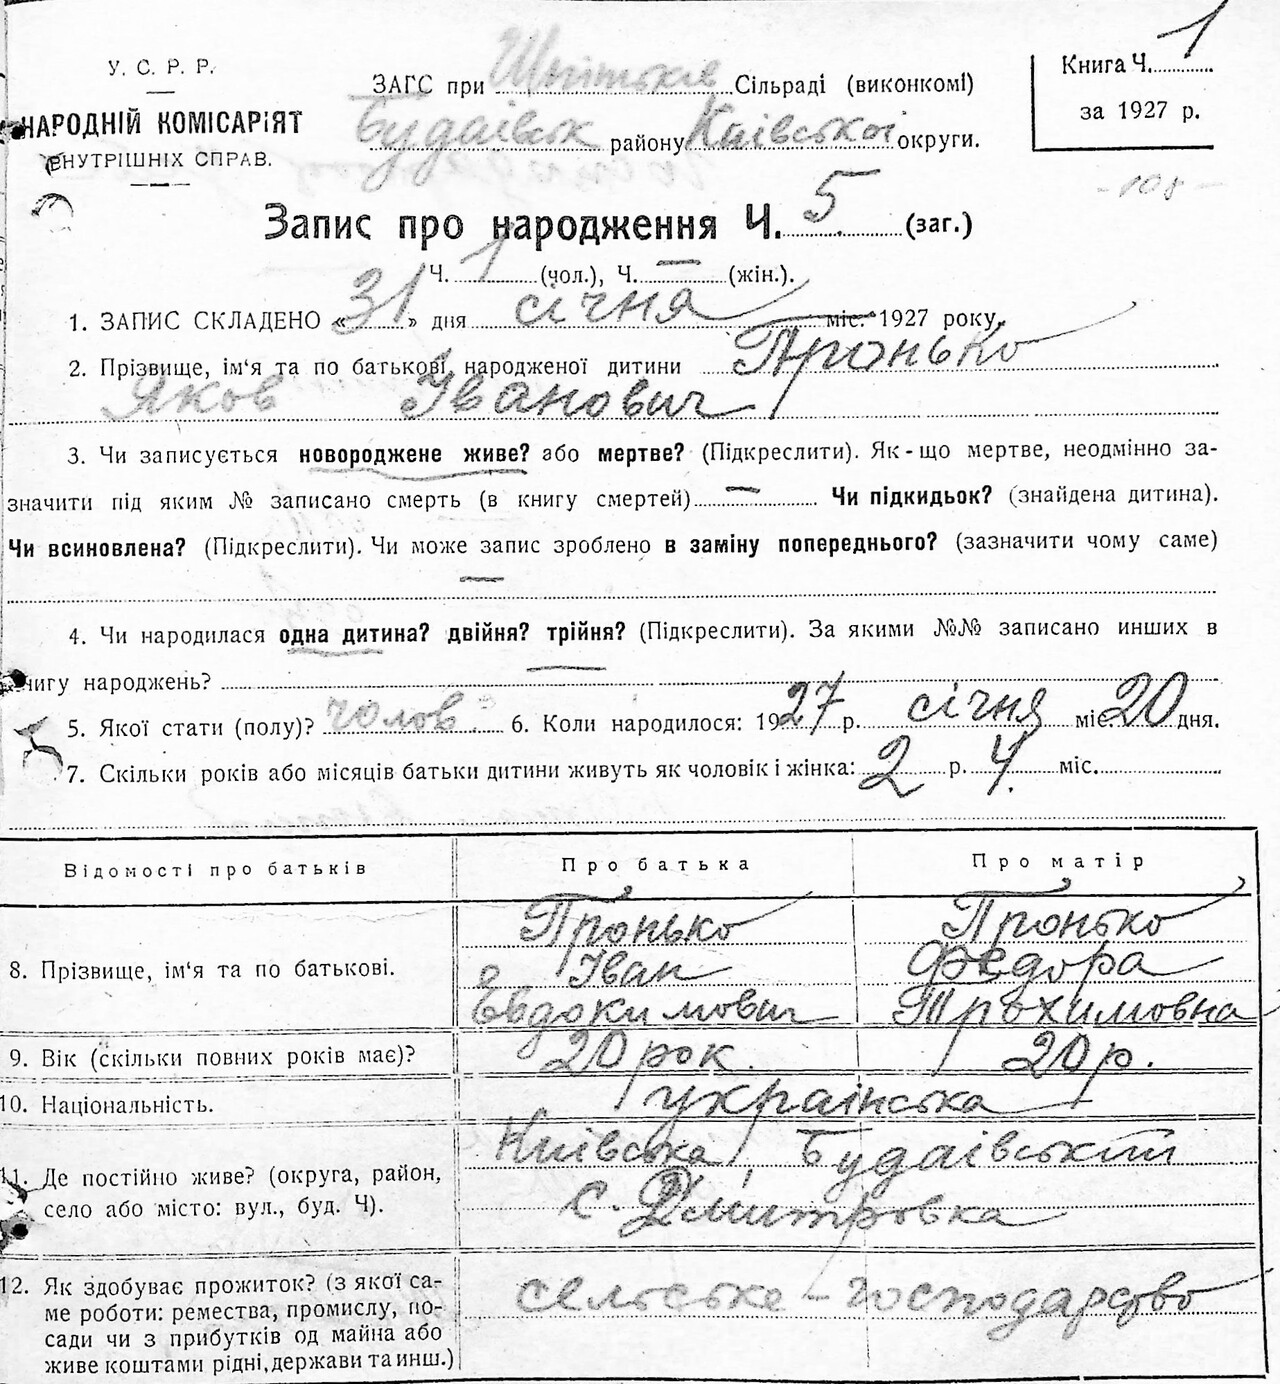 У. С. Р. Р.
НАРОДНІЙ КОМІСАРІЯТ
ВНУТРІШНІХ СПРАВ.
ЗАГС при Шпитьків Сільраді (виконкомі)
Будаівськ району Київської округи.
Книга Ч. 1
за 1927 р.
- 108 -
Запис про народження Ч. 5 (заг.)
Ч. 1 (чол.), Ч. — (жін.).
1. ЗАПИС СКЛАДЕНО «31» дня січня міс. 1927 року.
2. Прізвище, ім‘я та по батькові народженої дитини Пронько
Яков Іванович
3. Чи записується новороджене живе? або мертве? (Підкреслити). Як-що мертве, неодмінно за-
значити під яким № записано смерть (в книгу смертей) — Чи підкидьок? (знайдена дитина).
Чи всиновлена? (Підкреслити). Чи може запис зроблено в заміну попереднього? (зазначити чому саме)
—
4. Чи народилася одна дитина? двійня? трійня? (Підкреслити). За якими №№ записано инших в
книгу народжень? —
5. Якої стати (полу)? чолов. 6. Коли народилося: 1927 р. січня міс. 20 дня.
7. Скільки років або місяців батьки дитини живуть як чоловік і жінка: 2 р. 4 міс.
Відомості про батьків Про батька Про матір
8. Прізвище, ім‘я та по батькові. Пронько Іван Евдокимович Пронько Федора Трохимовна
9. Вік (скільки повних років має)? 20 рок. 20 р.
10. Національність. українська
11. Де постійно живе? (округа, район, Київська, Будаівський
село або місто: вул., буд. Ч). с. Дмитровка
12. Як здобуває прожиток? (з якої са-
ме роботи: ремества, промислу, по- сельське-господарство
сади чи з прибутків од майна або
живе коштами рідні, держави та инш.)